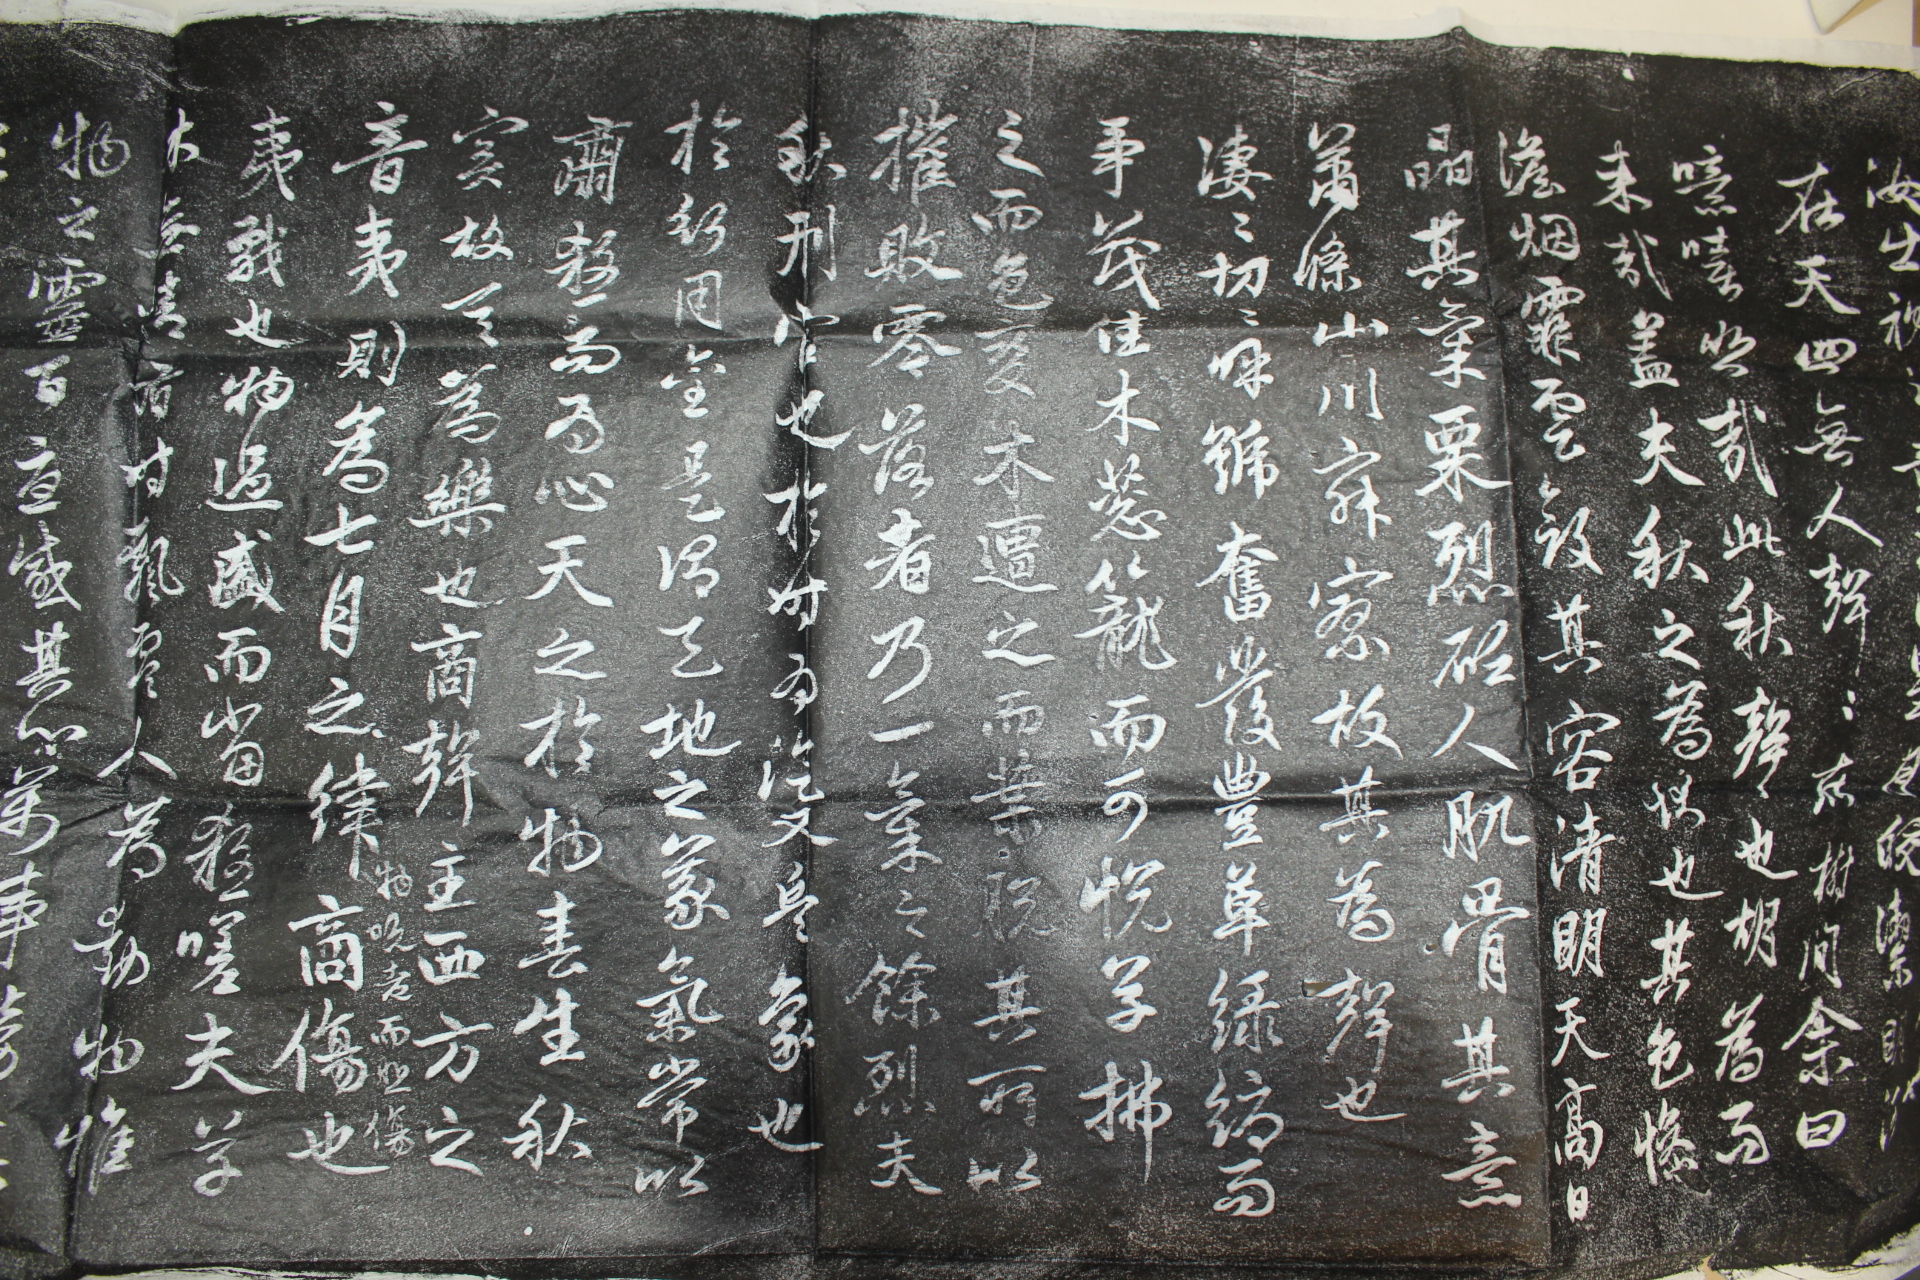 汝出視之童子曰星月皎潔明河
在天四無人聲〻在樹間余曰
噫嘻悲哉此秋聲也胡為而
来哉蓋夫秋之為狀也其色慘
澹烟霏雲斂其容清明天高日
晶其氣栗烈砭人肌骨其意
蕭條山川寂寥故其為聲也
淒〻切〻呼號奮發豐草綠縟而
爭茂佳木葱籠而可悅草拂
之而色變木遭之而葉脫其所以
摧敗零落者乃一氣之餘烈夫
秋刑官也於時為陰又兵象也
於行用金是謂天地之義氣常以
肅殺而為心天之於物春生秋
實故其為樂也商聲主西方之
音夷則為七月之律商傷也
物既老而悲傷
夷戮也物過盛而當殺嗟夫草
木無情有時飄零人為動物惟
物之靈百憂感其心萬事勞